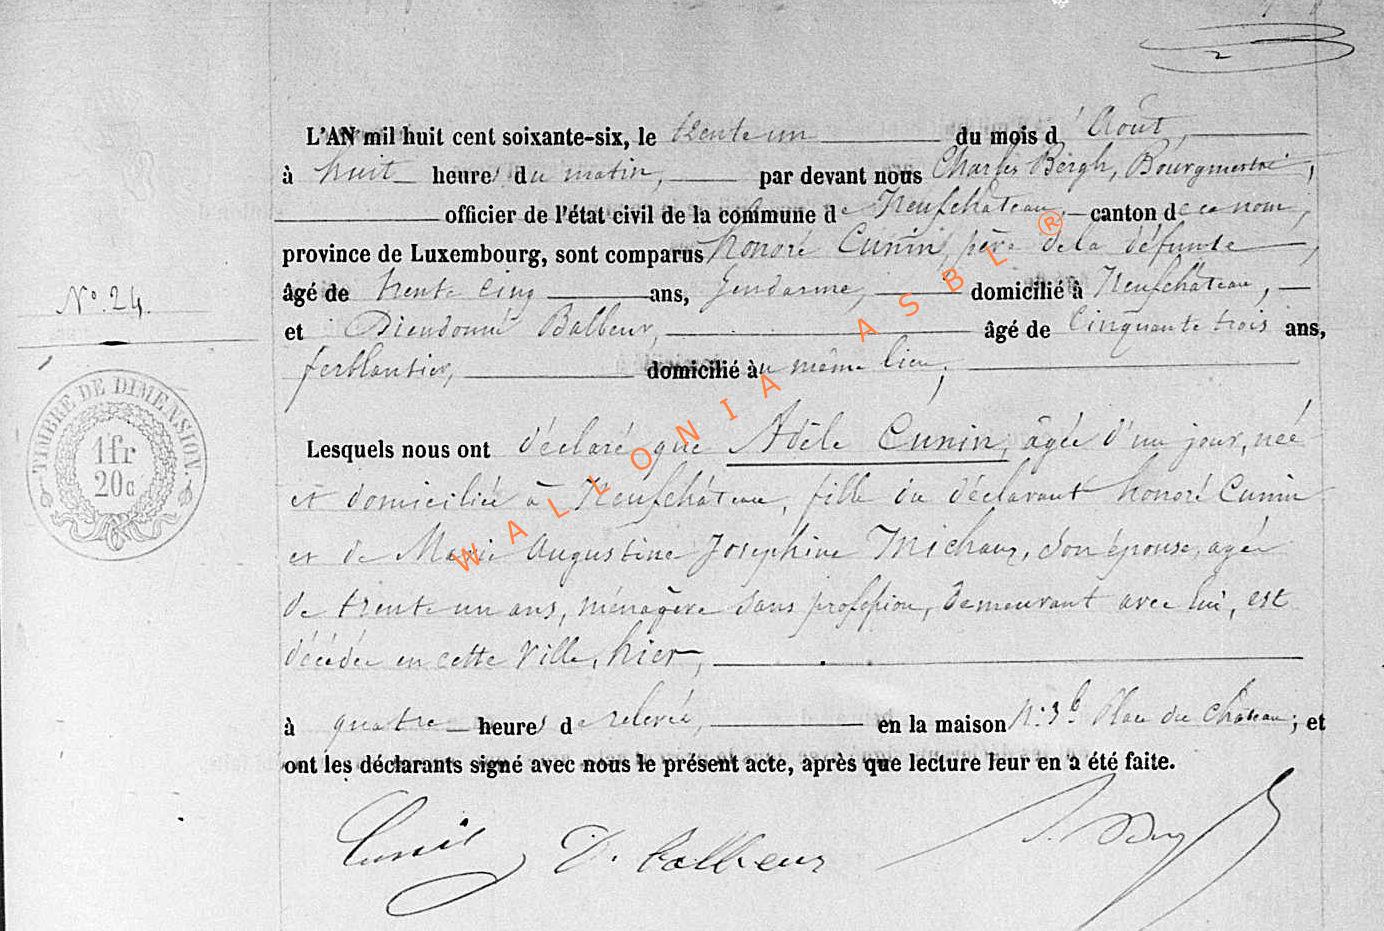 2
L'AN mil huit cent soixante-six, le trente un du mois d'Août,
à huit heures du matin, par devant nous Charles Bergh, Bourgmestre,
officier de l'état civil de la commune de Neufchâteau, canton de ce nom,
province de Luxembourg, sont comparus honoré Cunin, père de la défunte,
âgé de trente cinq ans, Gendarme, domicilié à Neufchâteau,
et Dieudonné Balbeur, âgé de Cinquante trois ans,
ferblantier, domicilié au même lieu,
Lesquels nous ont déclaré que Adèle Cunin, âgée d'un jour, née
et domiciliée à Neufchâteau, fille du déclarant honoré Cunin
et de Marie Augustine Josephine Michaux, son épouse, agée
de trente un ans, ménagère sans profession, demeurant avec lui, est
décédée en cette Ville, hier,
à quatre heures de relevée, en la maison Place du Château; et
ont les déclarants signé avec nous le présent acte, après que lecture leur en a été faite.
Cunin D. Balbeur
N° 24.
TIMBRE DE DIMENSION.
1 fr
20 c
WALLONIA ASBL ®